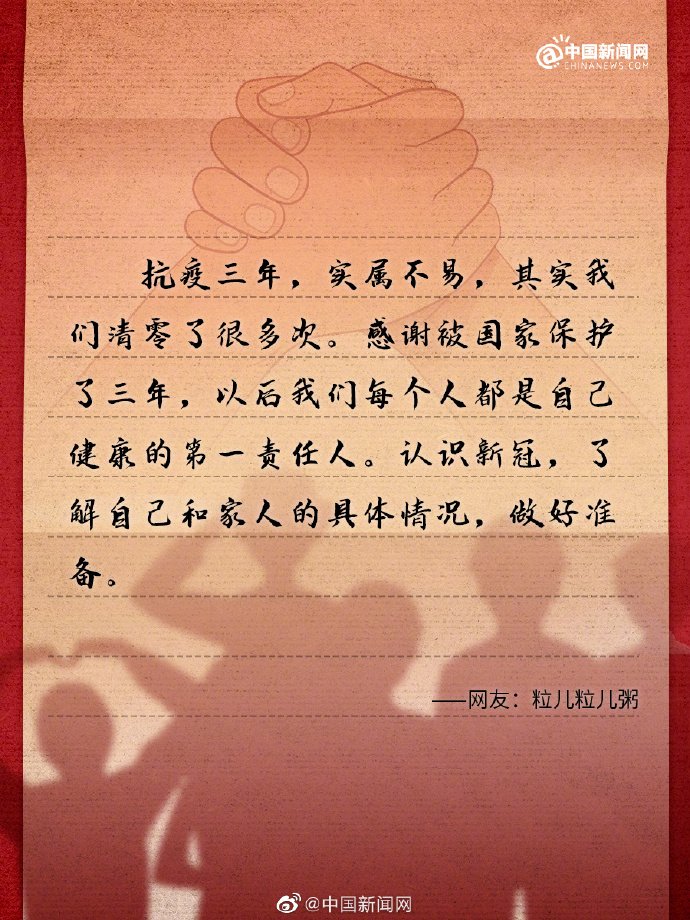 @中国新闻网
CHINANEWS.COM
抗疫三年，实属不易，其实我
们清零了很多次。感谢被国家保护
了三年，以后我们每个人都是自己
健康的第一责任人。认识新冠，了
解自己和家人的具体情况，做好准
备。
——网友：粒儿粒儿粥
@中国新闻网